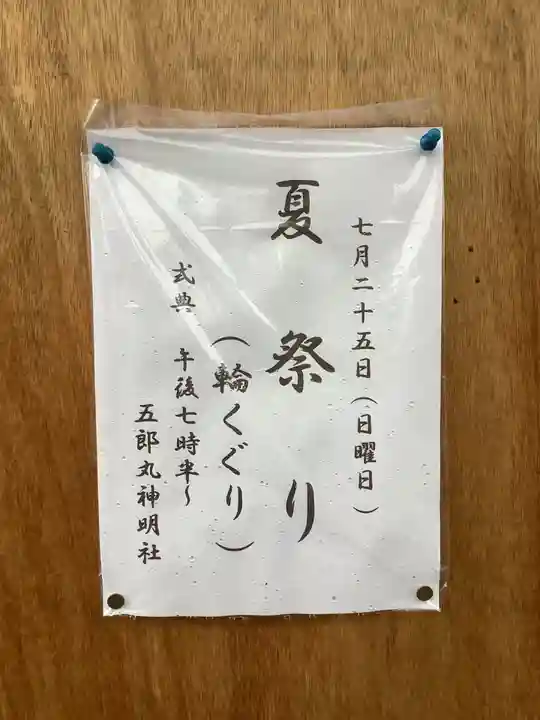 七月二十五日（日曜日）
夏祭り
（輪くぐり）
式典 午後七時半～
五郎丸神明社